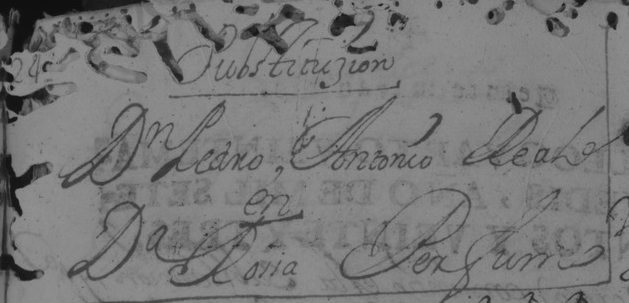 24
Substituzion
Dn Pedro, Antonio Reale
en
Da Rosia Perfum